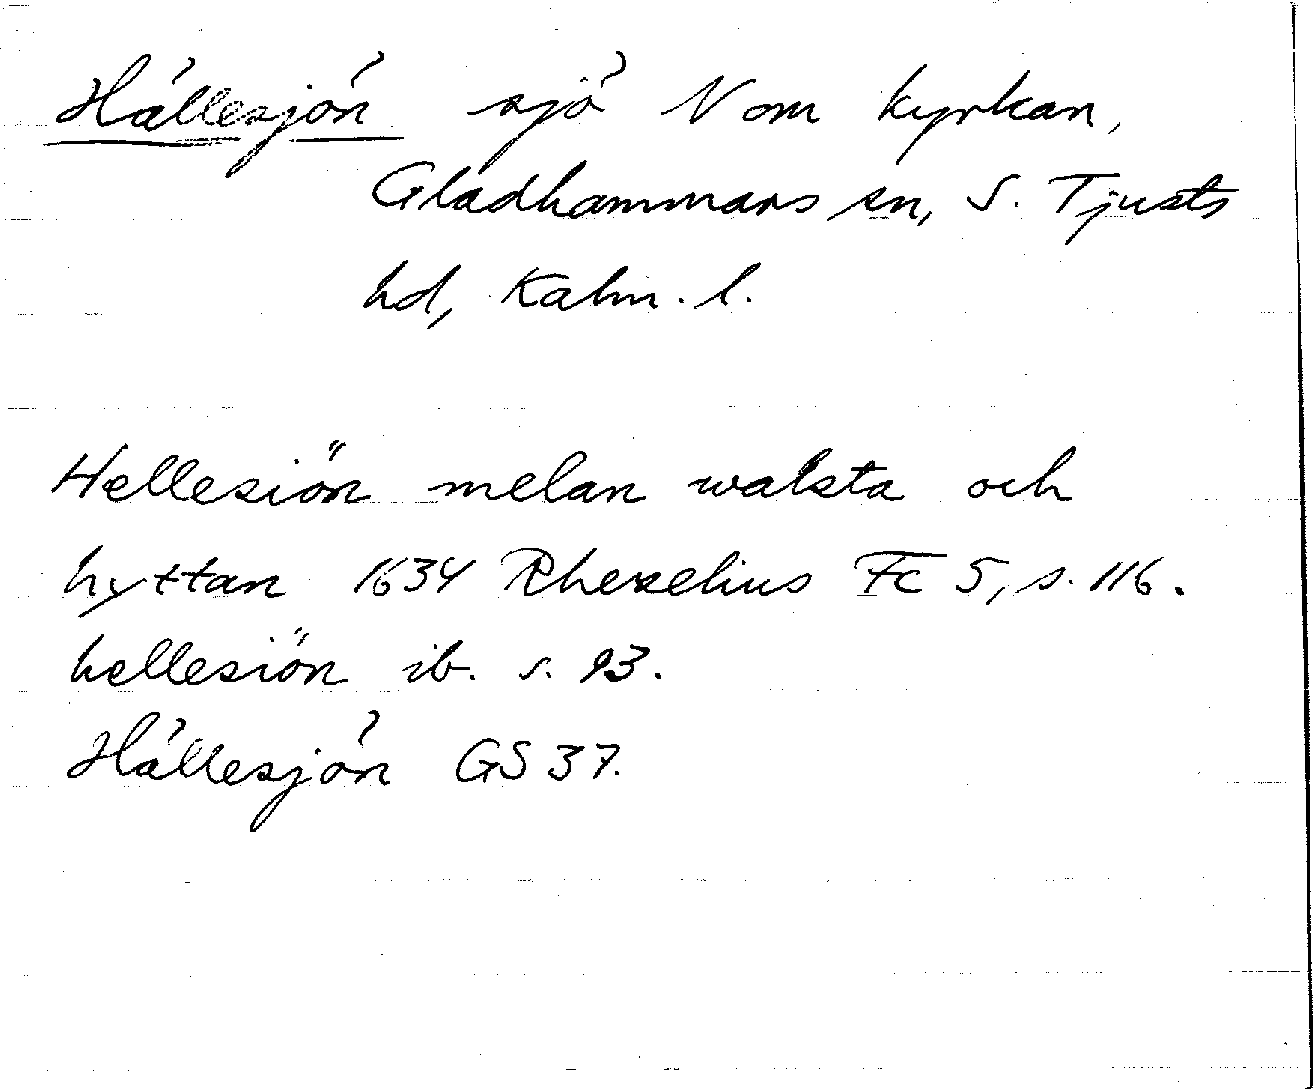 Hällesjön sjö N om kyrkan,
Gladhammars sn, S. Tjusts
hd, Kalm. l.
Hellesiön melan walsta och
hyttan 1634 Rhezelius Fc 5, s. 116.
hellesiön ib. s. 93.
Hällesjön GS 37.